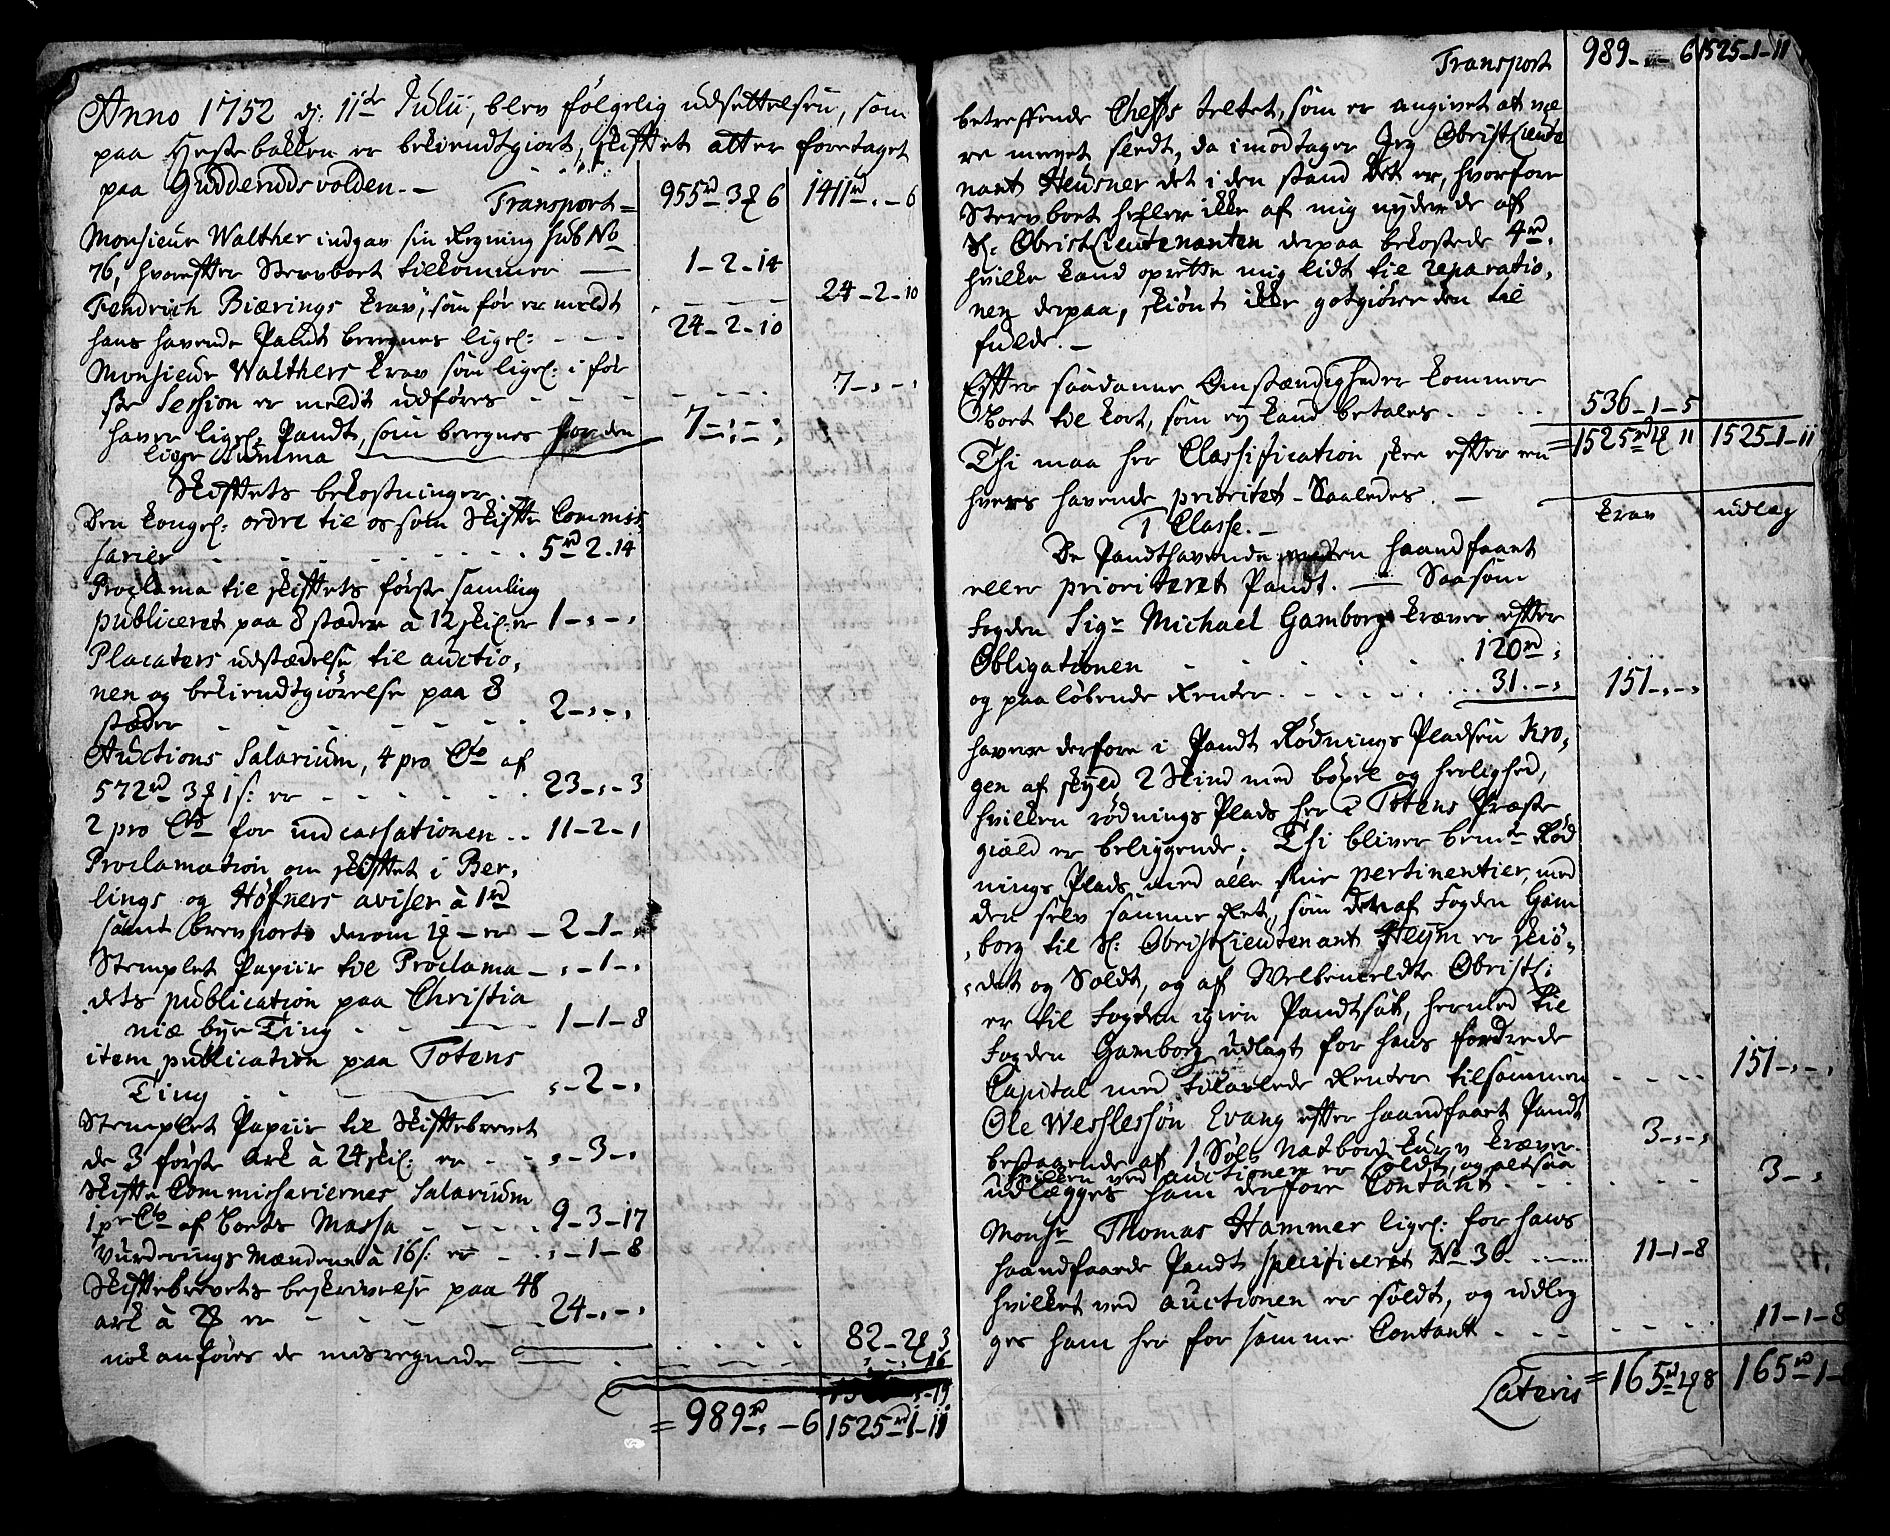 Anno 1752 d: 11te Julii, blev følgelig udsettelsen, som
paa Hestebakken er bekiendtgiort, skiftet atter foretaget
paa Gudderudsvolden. -
Transport = 955rd 3 6 1411rd . - 6
Monsieur Walther indgav sin Regning sub No
76, hvorefter Sterboet tilkommer — 1-2-14
24-2-10
Fendrich Biærings krav, som før er meldt
hans havende Pandt beregnes ligel: - - - 24-2-10
Monsieur Walthers krav som ligel: i før
ste Session er meldt udføres - - - 7-,-,
haver ligel: Pandt, som beregnes for den 7-:-:
lige Summa
Skiftets bekostninger.
Den kongel: ordre til os som Skifte Commis
sarier - - - - 5rd 2.14
Proclama til skiftets første samling
publiceret paa 8 stæder à 12 skil: er 1-,-,
Placaters udstædelse til auctio,
nen og bekiendtgiørelse paa 8
stæder - - - - 2-,-,
Auctions Salarium, 4 pro Cto af
572rd 3 1s: er - - - - 23-,-3
2 pro Cto for indcassationen .. 11-2-1
Proclamation om skiftet i Ber,
lings og Höfners aviser à 1rd
samt brevporto derom 1 - er - 2-1-,
Stemplet Papiir til Proclama - ,-1-,
dets publication paa Christia
niæ bye Ting - - - 1-1-8
item publication paa Totens
Ting - - ,-2-,
Stemplet Papiir til Skiftebrevet
de 3 første Ark à 24 skil: er - - ,-3-,
Skifte Commissariernes Salarium
1 pr Cto af boets Massa - - - 9-3-17
Vurderings Mændene à 16s: er - - ,-1-8
Skiftebrevets beskrivelse paa 48
ark à 2 er - - - - 24-,-,
82-2 3
nok anføres de misregnede - - - 16
= 989rd , - 6 1525rd 1-11
Transport 989-,-6 1525-1-11
betreffende Chefs teltet, som er angivet at væ
re meget sledt, da imodtager Jeg Obristlieute
nant Heusner det i den stand det er, hvorfore
Sterboet heller ikke af mig nyder de af
Sl: Obristlieutenanten derpaa bekostede 4rd,
hvilke kand oprette mig lidt til reparatio,
nen derpaa, skiönt ikke gotgiører den til
fulde. -
Efter saadanne Omstændigheder kommer
Boet til kort, som ey kand betales. - - - 536-1-5
= 1525rd 1 11 1525-1-11
Thi maa her Classification skee efter en
hvers havende prioritet - Saaledes. -
krav udlæg
1 Classe. -
De Pandthavende haandfaaet
eller prioriteret Pandt. — Saasom
Fogden Sigr Michael Gamborg kræver efter
Obligationen - - - - 120rd ,
og paaløbende Renter. - - - - 31.-, 151-,-,
haver derfore i Pandt Rødnings Pladsen Kro,
gen af skyld 2 Skind med böxel og herlighed,
hvilken rødnings Plads her i Totens Præste
giæld er beliggende; Thi bliver bemte Rød
nings Plads med alle sine pertinentier, med
den selv samme Ret, som den af Fogden Gam
,borg til Sl: Obristlieutenant Heÿm er skiö-
,det og Soldt, og af Velbemeldte Obristl:
er til Fogden igien Pandtsat, hermed til
Fogden Gamborg udlagt for hans fordrede
Capital med tilavlede Renter tilsammen - - - 151-,-,
Ole Wesslessøn Evang efter haandfaaet Pandt
bestaaende af 1 Sölv Natbord kurv kræver. 3-,-,
hvilken ved auctionen er soldt, og altsaa
udlægges ham derfore Contant - - - 3-,
Monsr Thomas Hammer ligel: for hans
haandfaaede Pandt specificeret No 36. - - - 11-1-8
hvilket ved auctionen er soldt, og udleg
ges ham her for samme Contant - - - 11-1-8
Lateris = 165rd 1 8 165rd 1-